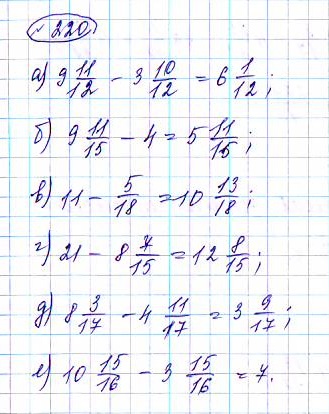 № 220.
а) 9 11/12 - 3 10/12 = 6 1/12;
б) 9 11/15 - 4 = 5 11/15;
в) 11 - 5/18 = 10 13/18;
г) 21 - 8 7/15 = 12 8/15;
д) 8 3/17 - 4 11/17 = 3 9/17;
е) 10 15/16 - 3 15/16 = 7.